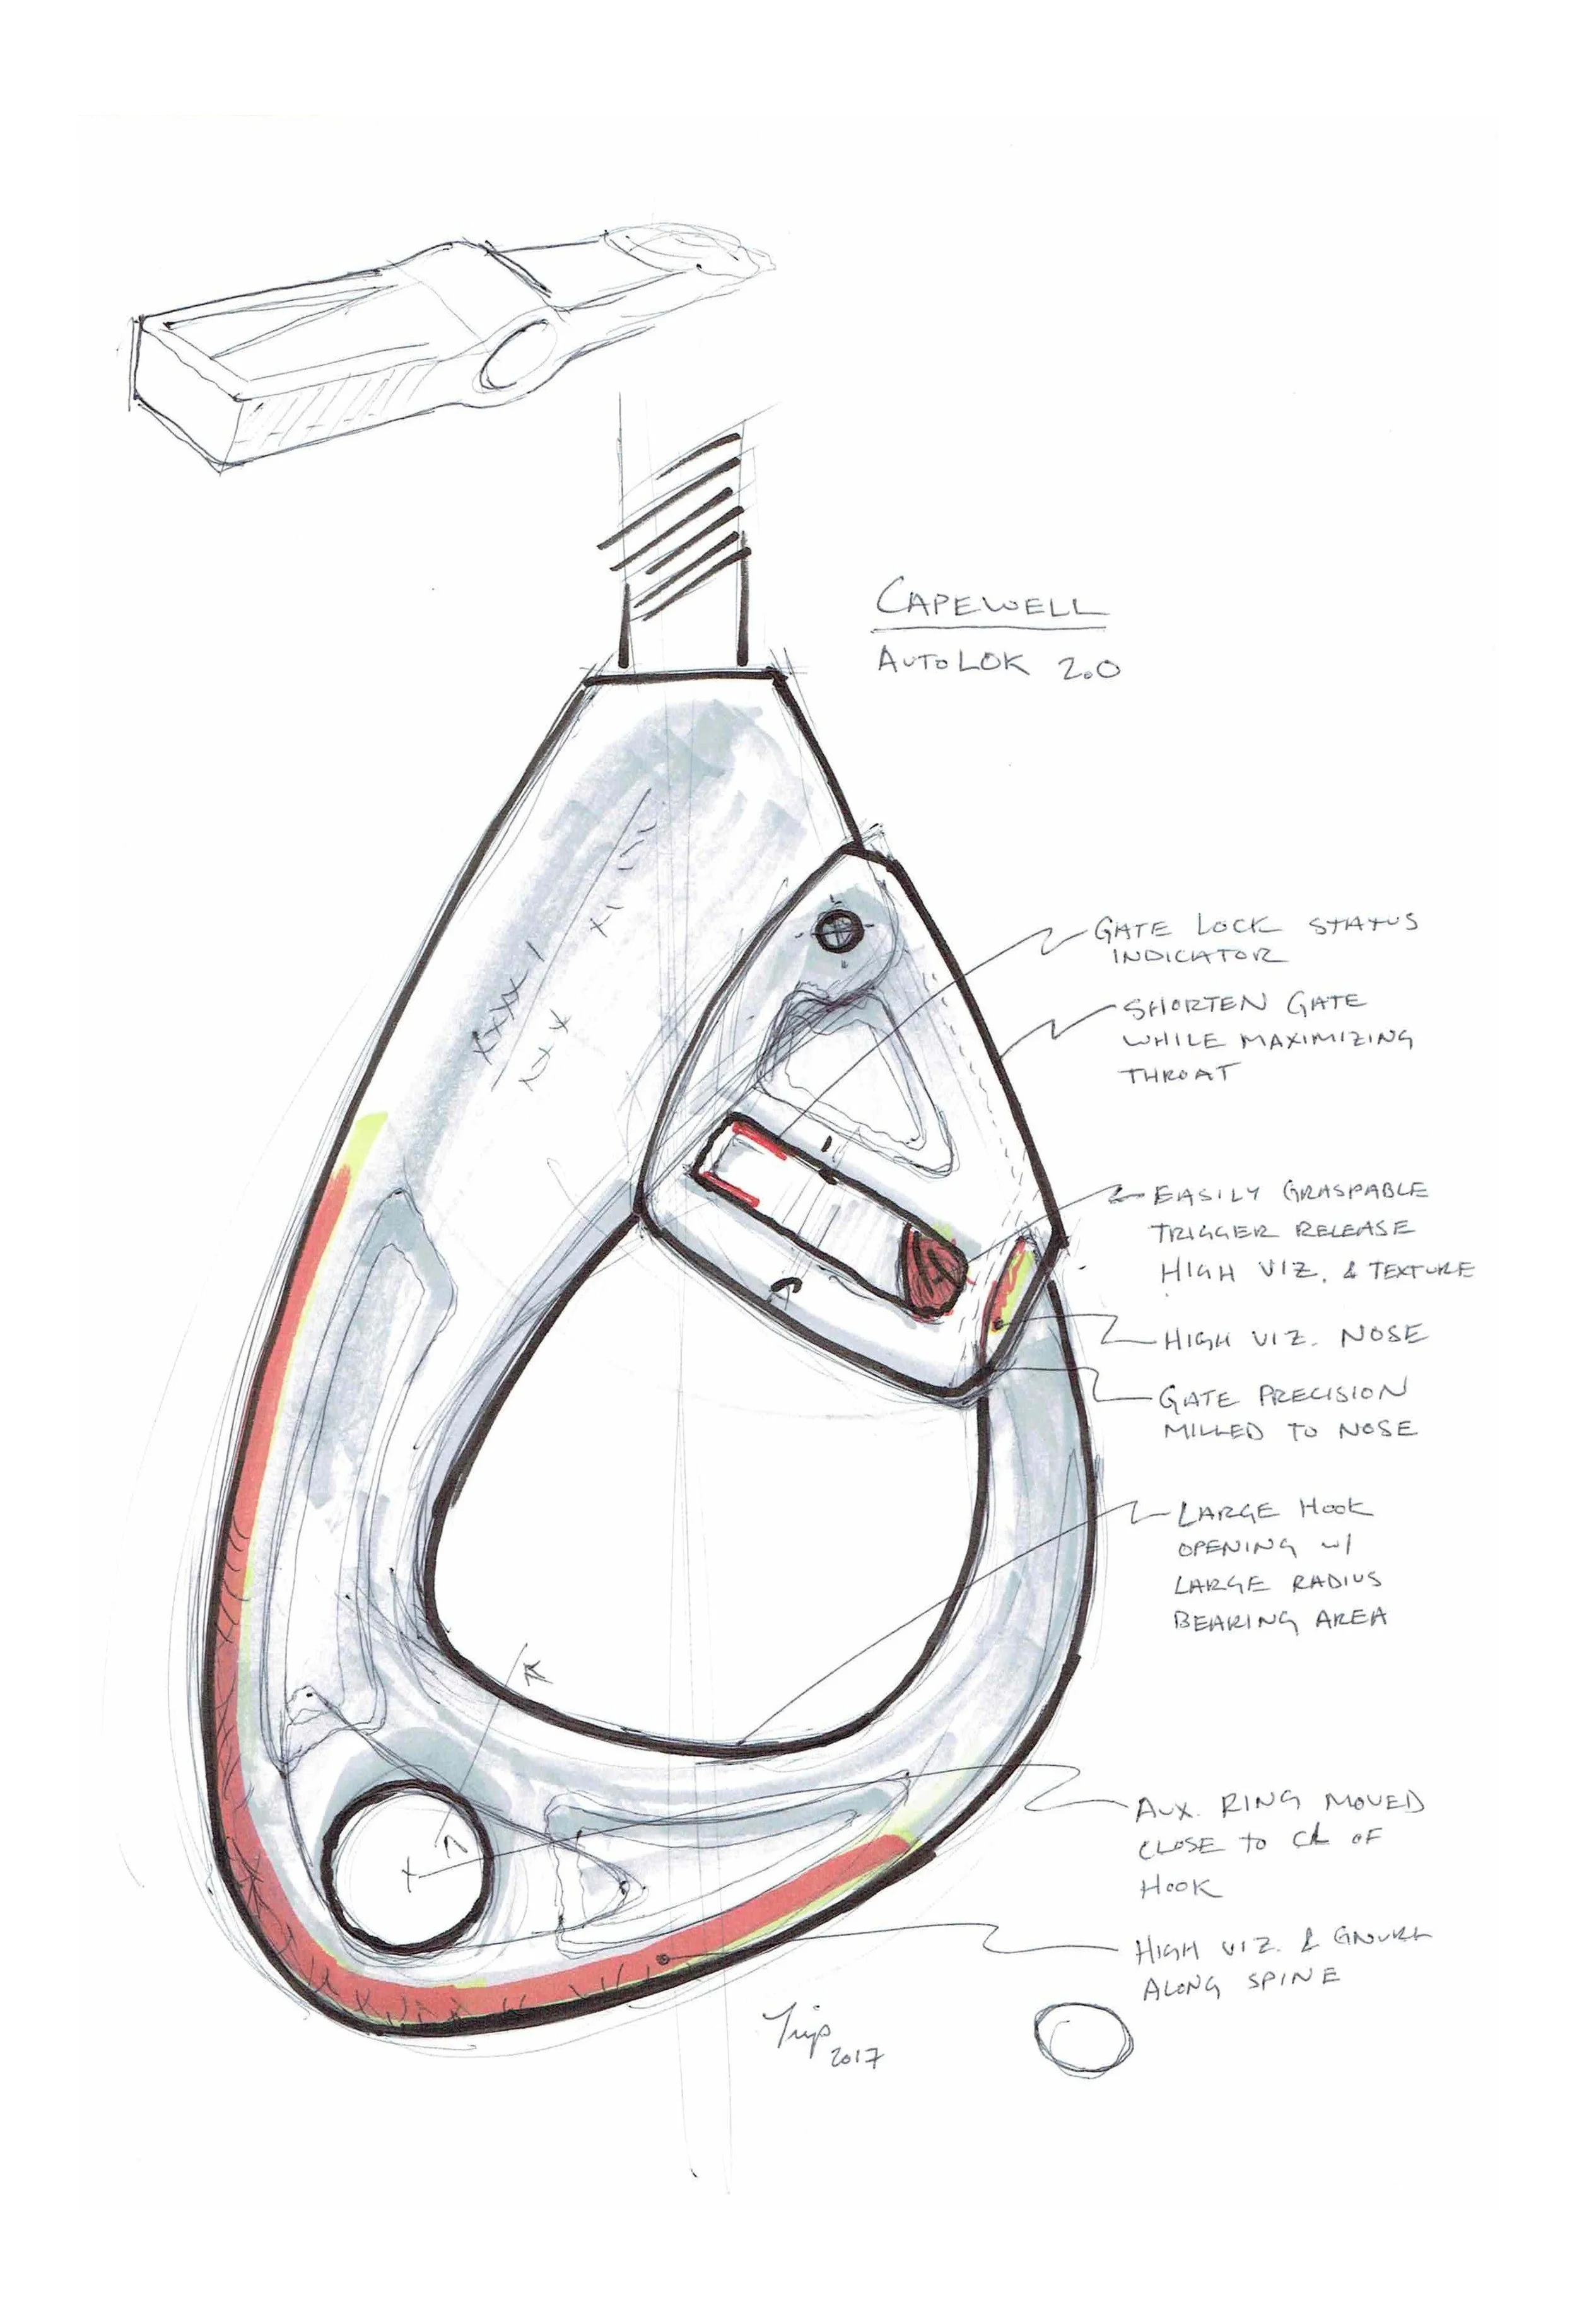 CAPEWELL
AUTOLOK 2.0
GATE LOCK STATUS
INDICATOR
SHORTEN GATE
WHILE MAXIMIZING
THROAT
EASILY GRASPABLE
TRIGGER RELEASE
HIGH VIZ. & TEXTURE
HIGH VIZ. NOSE
GATE PRECISION
MILLED TO NOSE
LARGE HOOK
OPENING W/
LARGE RADIUS
BEARING AREA
AUX. RING MOVED
CLOSE TO CL OF
HOOK
HIGH VIZ. & GNURL
ALONG SPINE
Trip
2017